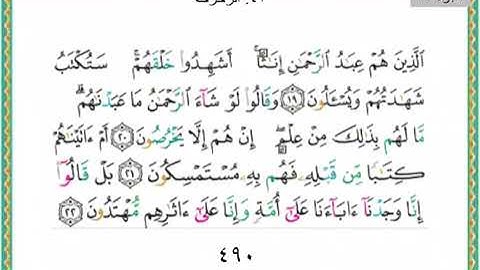 ٱلَّذِينَ هُمْ عِبَٰدُ ٱلرَّحْمَٰنِ إِنَٰثًا ۚ أَشَهِدُوا۟ خَلْقَهُمْ ۚ سَتُكْتَبُ
شَهَٰدَتُهُمْ وَيُسْـَٔلُونَ ١٩ وَقَالُوا۟ لَوْ شَآءَ ٱلرَّحْمَٰنُ مَا عَبَدْنَٰهُم ۗ
مَّا لَهُم بِذَٰلِكَ مِنْ عِلْمٍ ۖ إِنْ هُمْ إِلَّا يَخْرُصُونَ ٢٠ أَمْ ءَاتَيْنَٰهُمْ
كِتَٰبًا مِّن قَبْلِهِۦ فَهُم بِهِۦ مُسْتَمْسِكُونَ ٢١ بَلْ قَالُوٓا۟
إِنَّا وَجَدْنَآ ءَابَآءَنَا عَلَىٰٓ أُمَّةٍ وَإِنَّا عَلَىٰٓ ءَاثَٰرِهِم مُّهْتَدُونَ ٢٢
٤٩٠